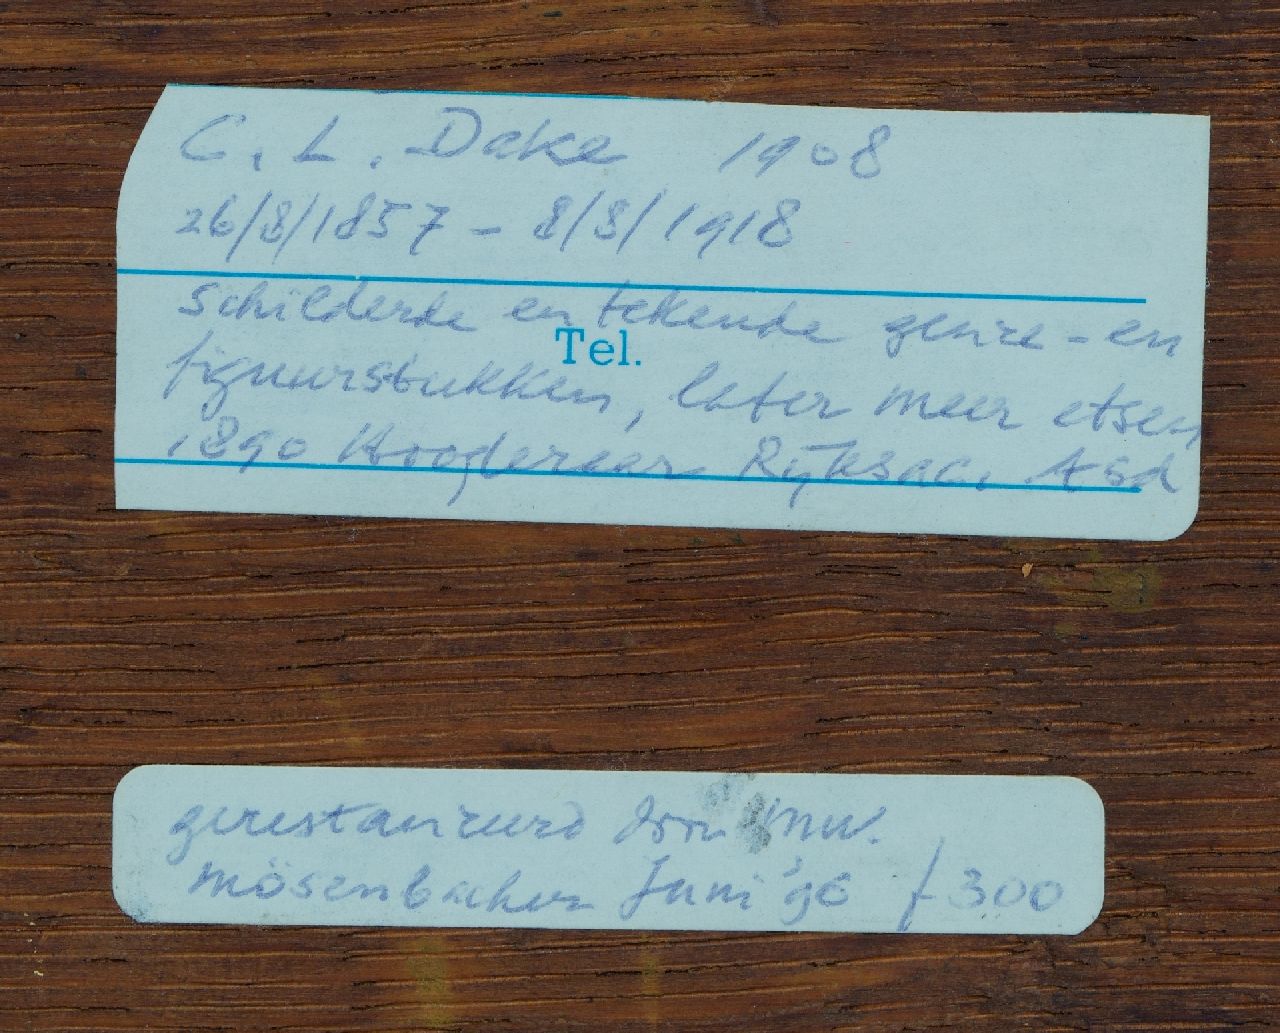 C. L. Dake 1908
26/8/1857 - 8/8/1918
schilderde en tekende genre - en
Tel.
figuurstukken, later meer etsen
1890 Hoogleraar Rijksac. Asd
gerestaureerd door Mw.
Mösenbacher Juni '96 f 300